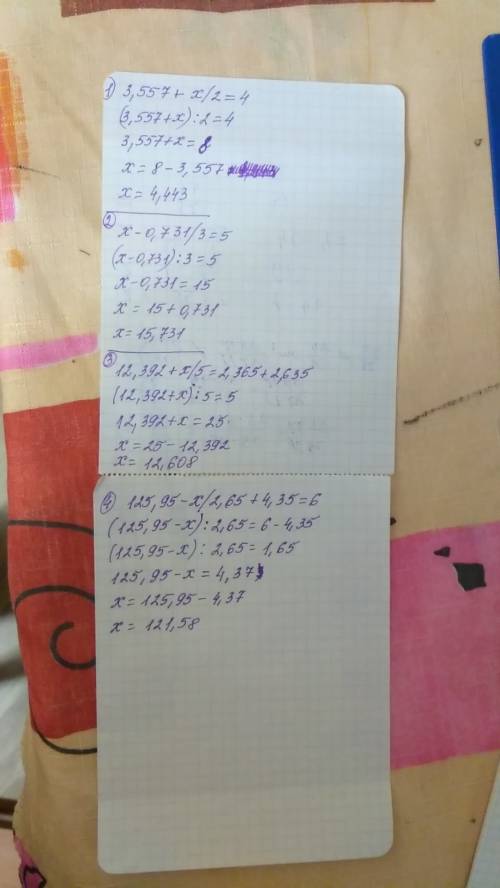 1) 3,557 + x/2 = 4
(3,557+x) : 2 = 4
3,557+x = 8
x = 8 - 3,557
x = 4,443
2) x - 0,731/3 = 5
(x-0,731) : 3 = 5
x - 0,731 = 15
x = 15 + 0,731
x = 15,731
3) 12,392 + x/5 = 2,365 + 2,635
(12,392+x) : 5 = 5
12,392 + x = 25
x = 25 - 12,392
x = 12,608
4) 125,95 - x/2,65 + 4,35 = 6
(125,95 - x) : 2,65 = 6 - 4,35
(125,95-x) : 2,65 = 1,65
125,95 - x = 4,37
x = 125,95 - 4,37
x = 121,58